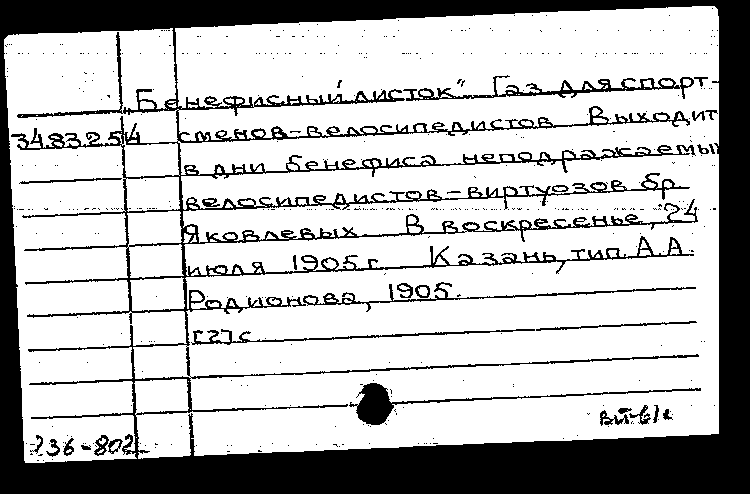 „Бенефисный листок" Газ для спорт-
34.83.2.5/4 сменов-велосипедистов Выходит
в дни бенефиса неподражаемых
велосипедистов-виртуозов бр.
Яковлевых. В воскресенье, 24
июля 1905 г. Казань, тип. А.А.
Родионова, 1905.
[2] с
236-802